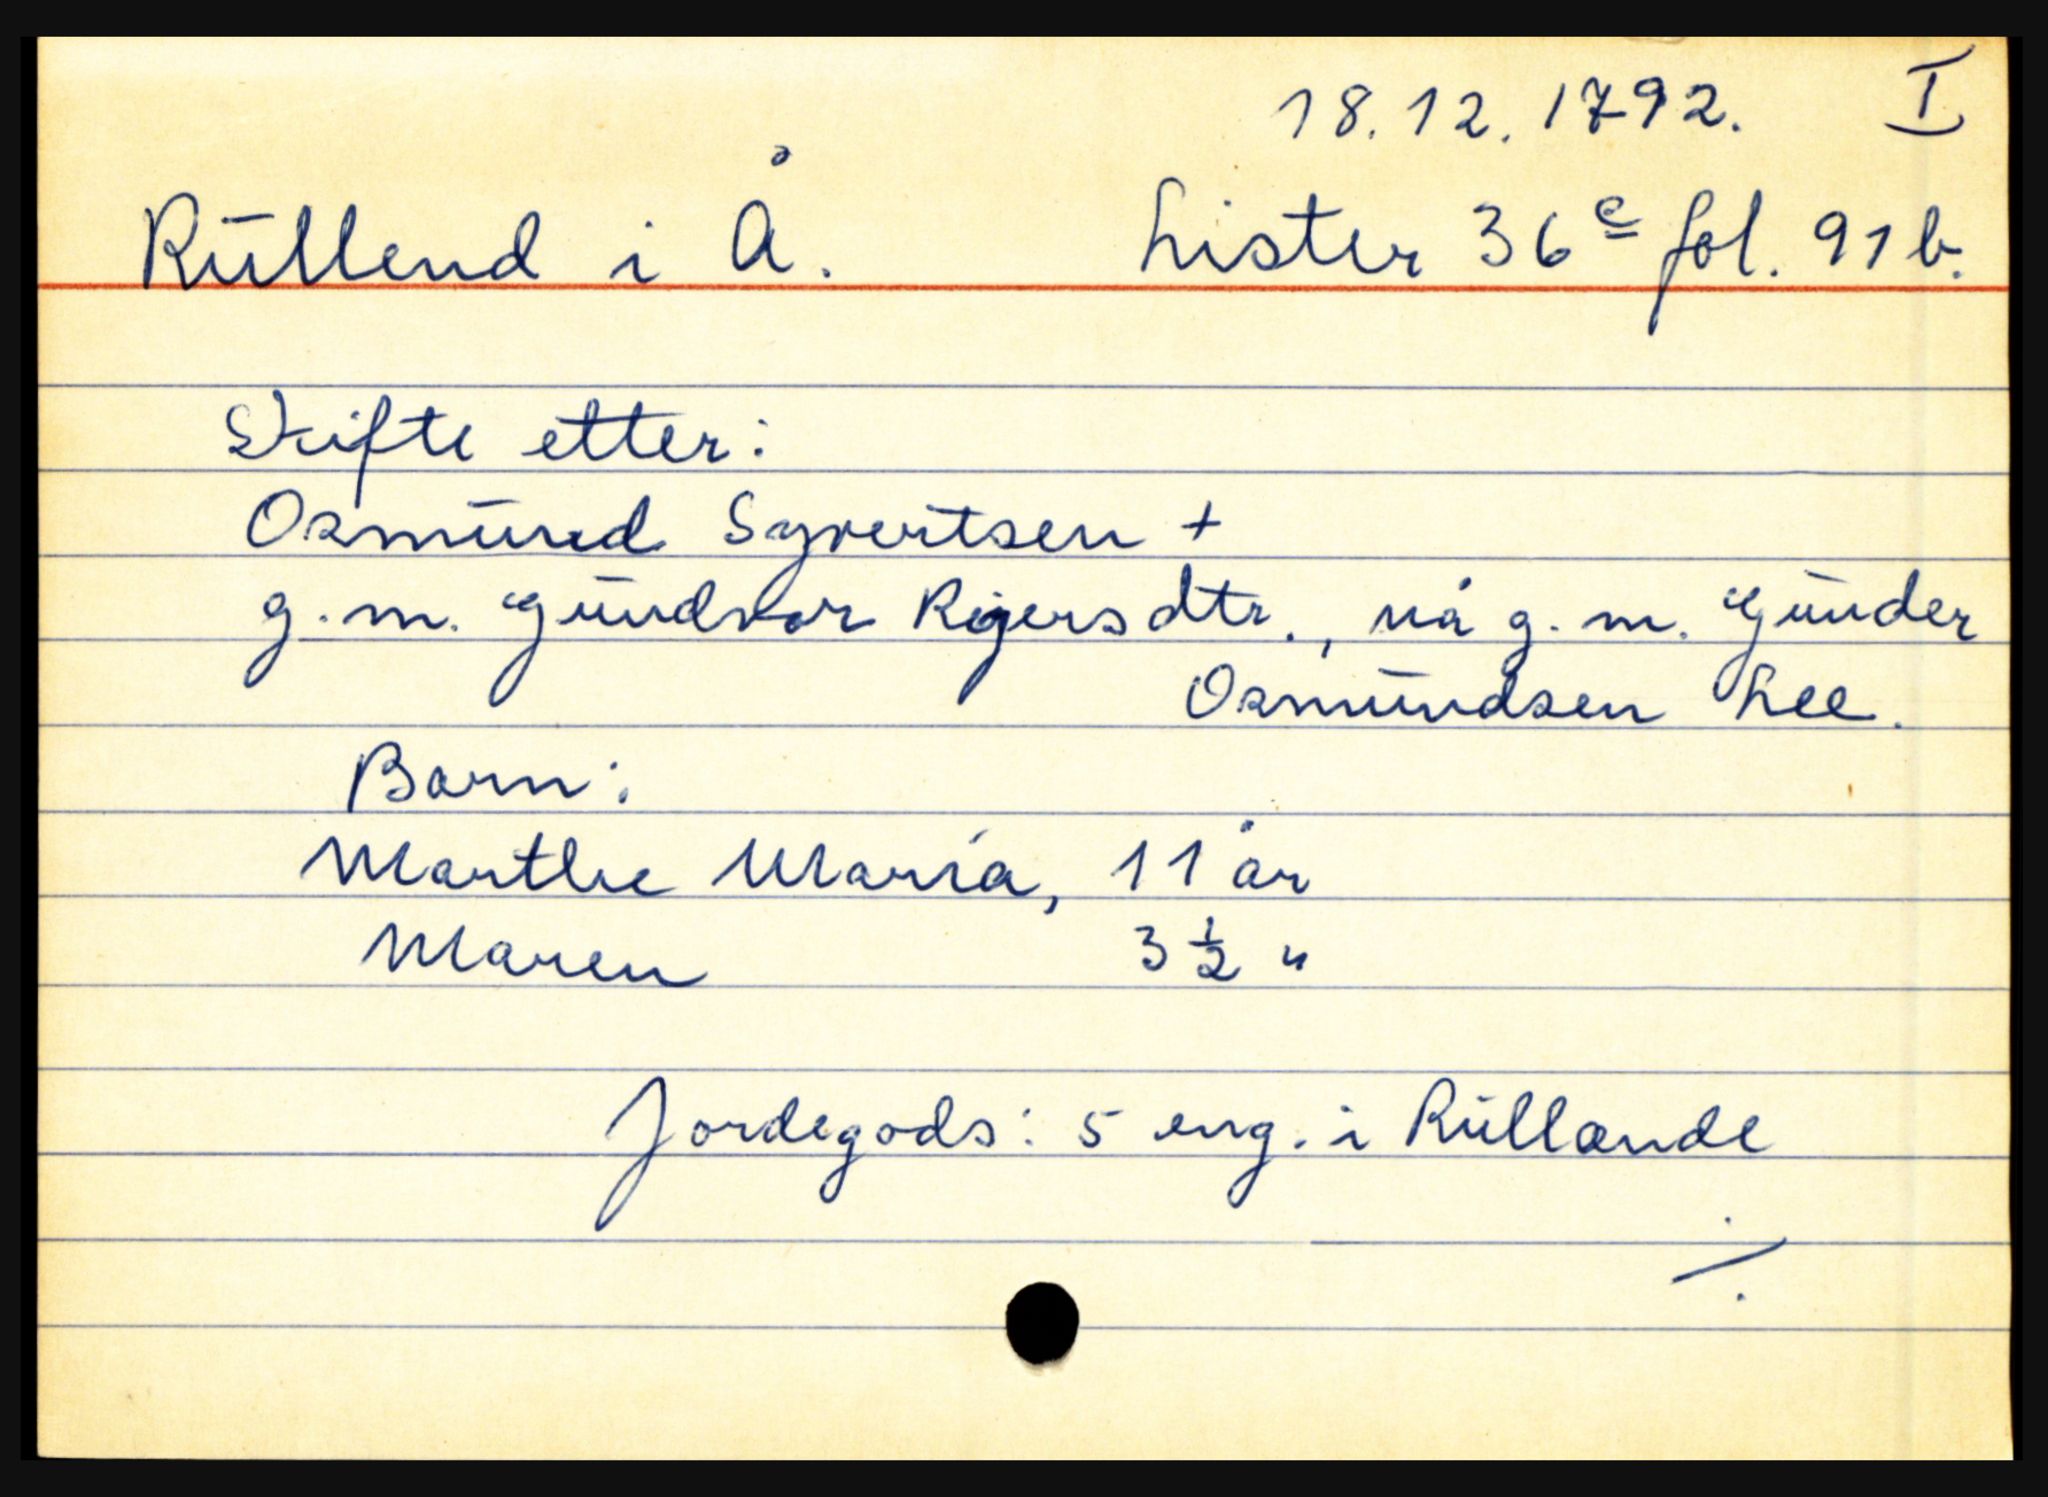 18.12.1792. I
Rullend i Å. Lister 36c fol. 91b.
Skifte etter:
Osmund Syvertsen +
g.m. Gundvor Reiersdtr., nå g.m. Gunder
Osmundsen Lee.
Barn:
Marthe Maria, 11 år
Maren 3 1/2 "
Jordegods: 5 eng. i Rullande
./.